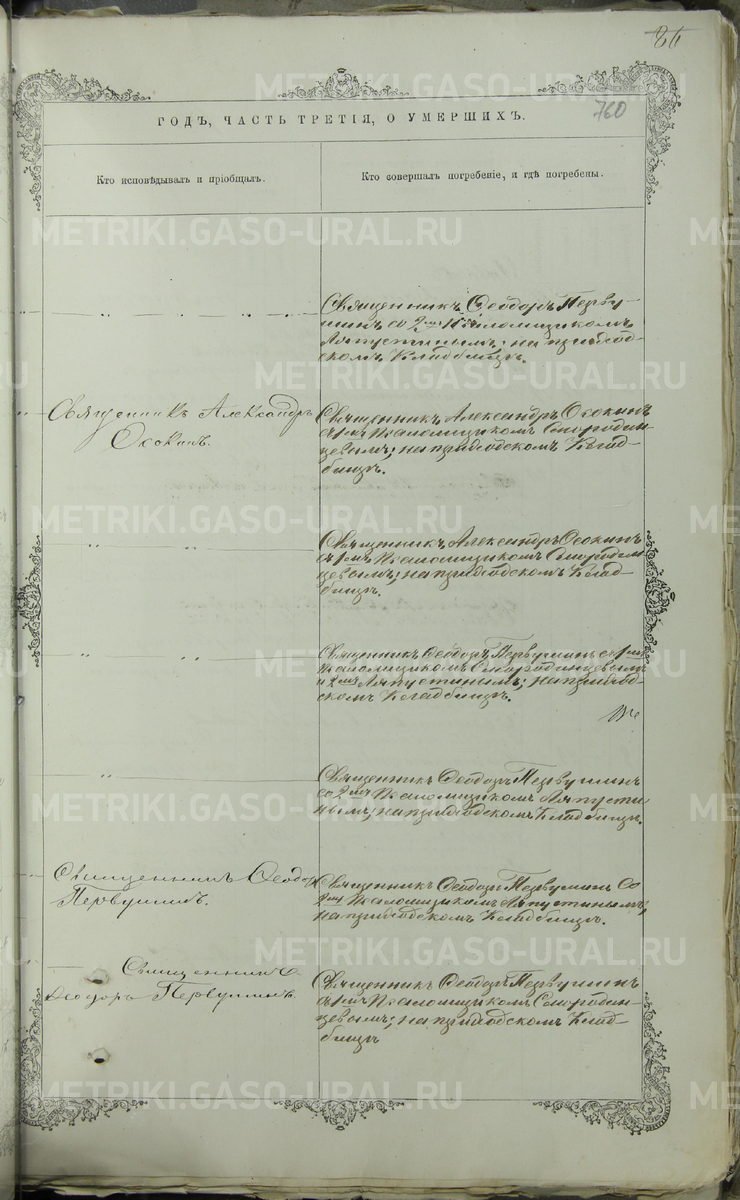 86
760
ГОДЪ, ЧАСТЬ ТРЕТІЯ, О УМЕРШИХЪ.
Кто исповѣдывалъ и пріобщалъ.
Кто совершалъ погребеніе, и гдѣ погребены.
Священникъ Ѳеодоръ Перву-
шинъ со 2мъ Псаломщикомъ
Ляпустинымъ; на приход-
скомъ Кладбищѣ.
Священникъ Александръ
Осокинъ.
Священникъ Александръ Осокинъ
съ 1мъ Псаломщикомъ Смородин-
цевымъ; на приходскомъ Клад-
бищѣ.
Священникъ Александръ Осокинъ
съ 1мъ Псаломщикомъ Смородин
цевымъ; на приходскомъ Клад-
бищѣ.
Священникъ Ѳеодоръ Первушинъ съ 1мъ
Псаломщикомъ Смородинцевымъ
и 2мъ Ляпустинымъ; на приход-
скомъ Кладбищѣ.
Священникъ Ѳеодоръ Первушинъ
со 2мъ Псаломщикомъ Ляпусти
нымъ; на приходскомъ Кладбищѣ.
Священникъ Ѳеодоръ
Первушинъ.
Священникъ Ѳеодоръ Первушинъ со
2мъ Псаломщикомъ Ляпустинымъ;
на приходскомъ Кладбищѣ.
Священникъ
Ѳеодоръ Первушинъ.
Священникъ Ѳеодоръ Первушинъ
съ 1мъ Псаломщикомъ Смородин-
цевымъ; на приходскомъ Клад-
бищѣ
METRIKI.GASO-URAL.RU